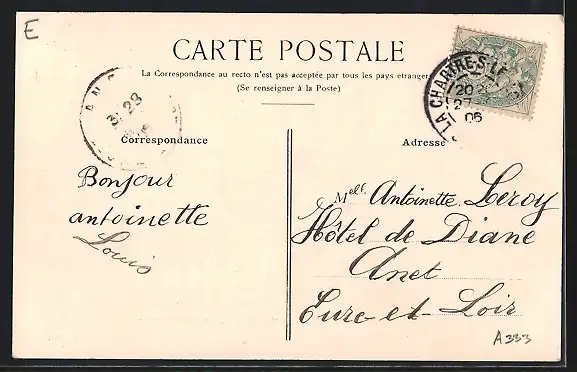 E
CARTE POSTALE
La Correspondance au recto n'est pas acceptée par tous les pays étrangers
(Se renseigner à la Poste)
LA CHARTRE-S-LE
20
27
06
ANET
23
Correspondance
Adresse
Bonjour
antoinette
Louis
Melle Antoinette Leroy
Hôtel de Diane
Anet
Eure-et-Loir
A333